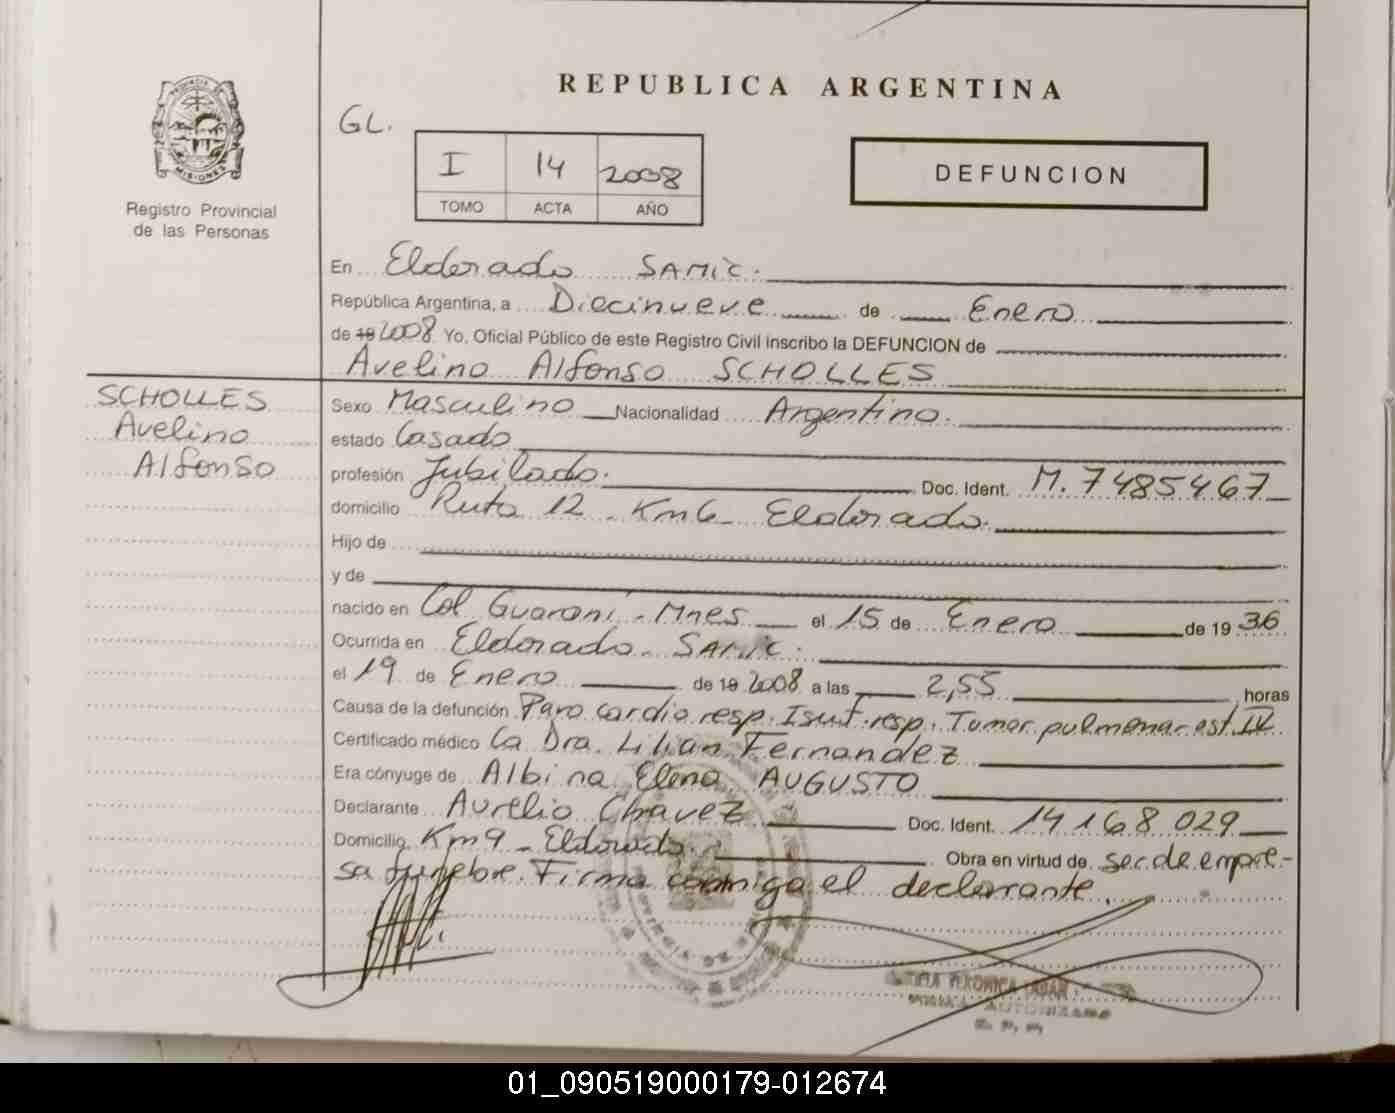 REPUBLICA ARGENTINA
PROVINCIA DE
MISIONES
Registro Provincial
de las Personas
GL.
I 14 2008
TOMO ACTA AÑO
DEFUNCION
En Eldorado SAMIC.
República Argentina, a Diecinueve de Enero
de 19 2008 Yo, Oficial Público de este Registro Civil inscribo la DEFUNCION de
Avelino Alfonso SCHOLLES
SCHOLLES
Avelino
Alfonso
Sexo Masculino Nacionalidad Argentino.
estado Casado
profesión Jubilado. Doc. Ident. M. 7485467
domicilio Ruta 12 - Km 6 - Eldorado.
Hijo de
y de
nacido en Col. Guaraní - Mnes el 15 de Enero de 19 36
Ocurrida en Eldorado - SAMIC.
el 19 de Enero de 19 2008 a las 2,55 horas
Causa de la defunción Paro cardio resp. Isuf. resp. Tumor pulmonar est. IV
Certificado médico La Dra. Lilian Fernandez
Era cónyuge de Albina Elena AUGUSTO
Declarante Aurelio Chavez Doc. Ident. 14168029
Domicilio Km 9 - Eldorado. Obra en virtud de ser. de empre-
sa funebre. Firma conmigo el declarante.
VERONICA
AUTORIZADO
01_090519000179-012674